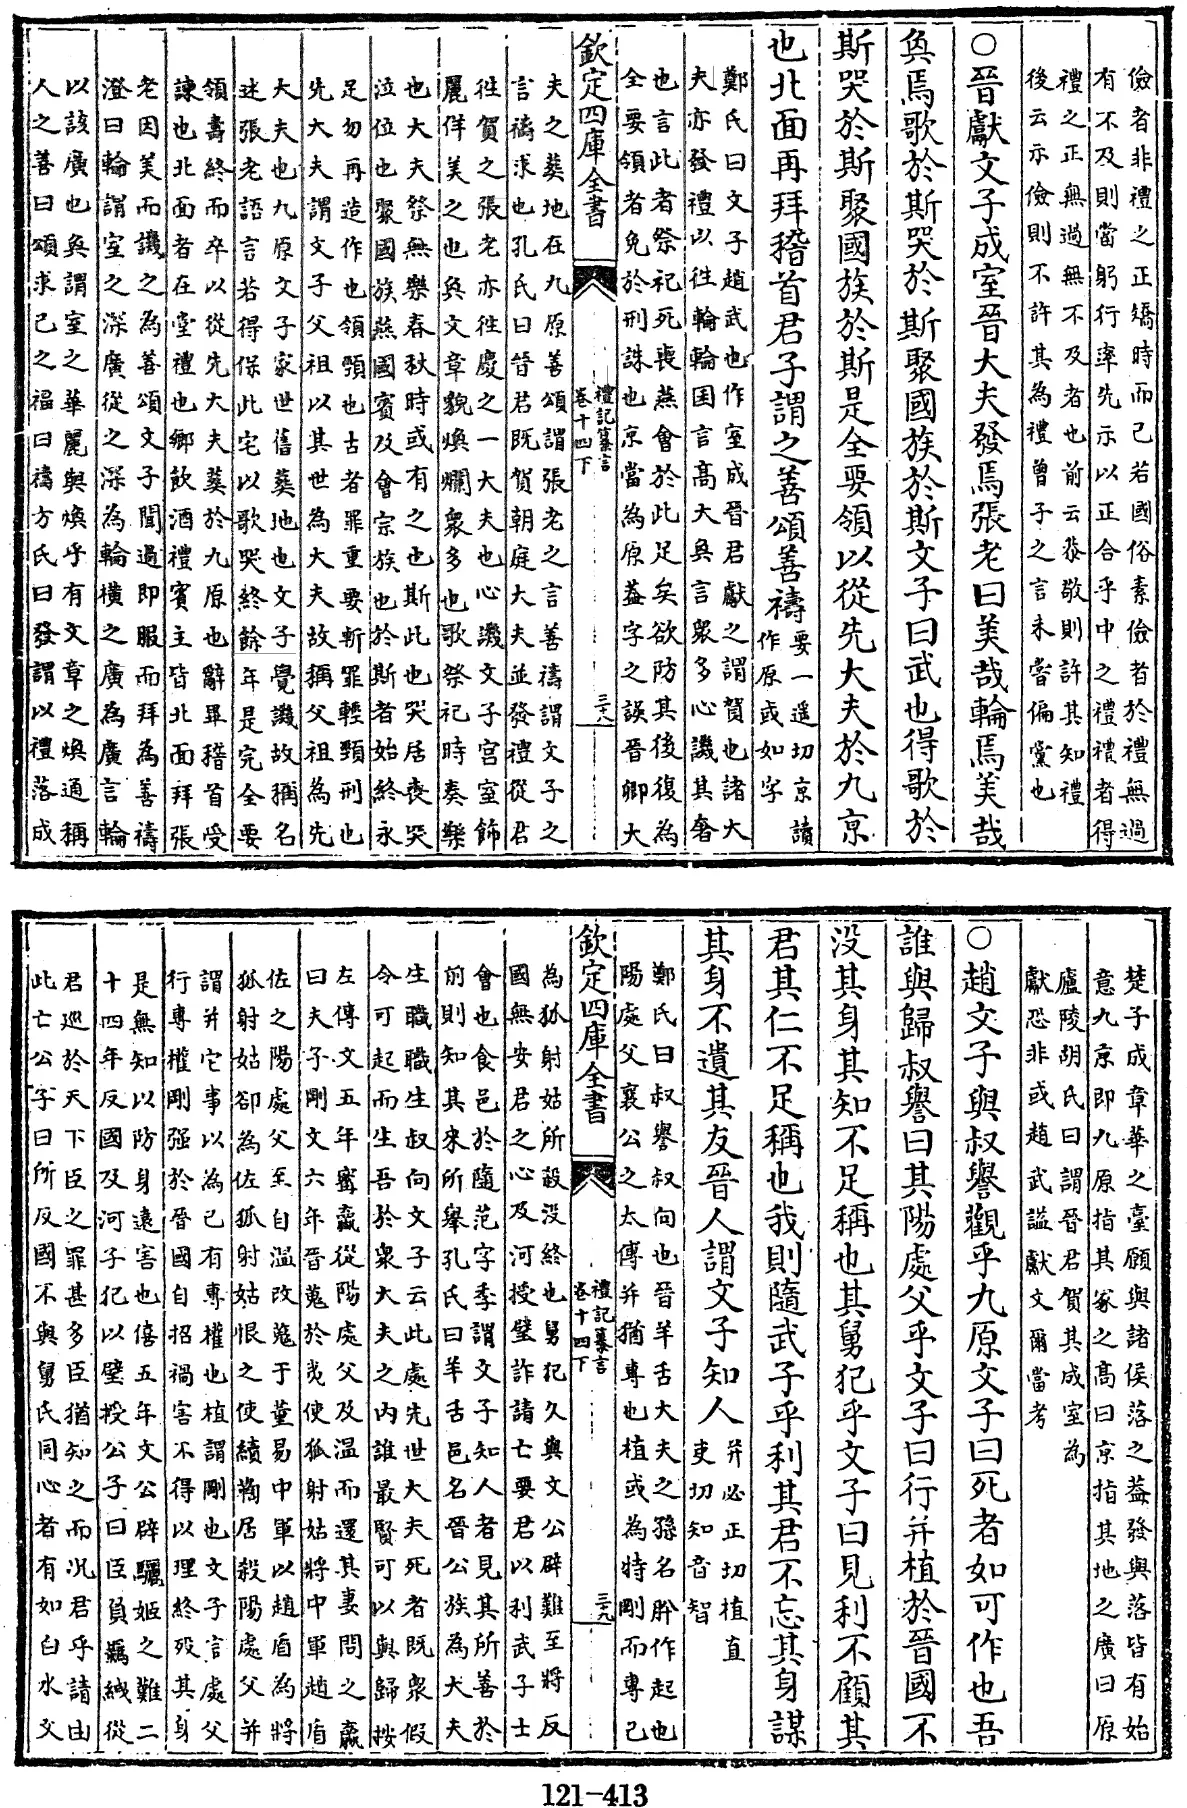 儉者非禮之正矯時而已若國俗素儉者於禮無過
有不及則當躬行率先示以正合乎中之禮禮者得
禮之正無過無不及者也前云恭敬則許其知禮
後云示儉則不許其為禮曾子之言未嘗偏黨也
○晉獻文子成室晉大夫發焉張老曰美哉輪焉美哉
奐焉歌於斯哭於斯聚國族於斯文子曰武也得歌於
斯哭於斯聚國族於斯是全要領以從先大夫於九京
也北面再拜稽首君子謂之善頌善禱
要一遥切京讀
作原或如字
鄭氏曰文子趙武也作室成晉君獻之謂賀也諸大
夫亦發禮以往輪輪囷言高大奐言衆多心譏其奢
也言此者祭祀死喪燕會於此足矣欲防其後復為
全要領者免於刑誅也京當為原蓋字之誤晉卿大
欽定四庫全書
禮記纂言
卷十四下
三十八
夫之葬地在九原善頌謂張老之言善禱謂文子之
言禱求也孔氏曰晉君既賀朝庭大夫並發禮從君
往賀之張老亦往慶之一大夫也心譏文子宫室飾
麗佯美之也奐文章貌煥爛衆多也歌祭祀時奏樂
也大夫祭無樂春秋時或有之也斯此也哭居喪哭
泣位也聚國族燕國賓及會宗族也於斯者始終永
足勿再造作也領頸也古者罪重要斬罪輕頸刑也
先大夫謂文子父祖以其世為大夫故稱父祖為先
大夫也九原文子家世舊葬地也文子覺譏故稱名
述張老語言若得保此宅以歌哭終餘年是完全要
領壽終而卒以從先大夫葬於九原也辭畢稽首受
諫也北面者在堂禮也鄉飲酒禮賓主皆北面拜張
老因美而譏之為善頌文子聞過即服而拜為善禱
澄曰輪謂室之深廣從之深為輪横之廣為廣言輪
以該廣也奐謂室之華麗與煥乎有文章之煥通稱
人之善曰頌求己之福曰禱方氏曰發謂以禮落成
楚子成章華之臺願與諸侯落之蓋發與落皆有始
意九京即九原指其冢之高曰京指其地之廣曰原
廬陵胡氏曰謂晉君賀其成室為
獻恐非或趙武謚獻文爾當考
○趙文子與叔譽觀乎九原文子曰死者如可作也吾
誰與歸叔譽曰其陽處父乎文子曰行并植於晉國不
没其身其知不足稱也其舅犯乎文子曰見利不顧其
君其仁不足稱也我則隨武子乎利其君不忘其身謀
其身不遺其友晉人謂文子知人
并必正切植直
吏切知音智
鄭氏曰叔譽叔向也晉羊舌大夫之孫名肸作起也
陽處父襄公之太傅并猶專也植或為特剛而專己
欽定四庫全書
禮記纂言
卷十四下
三十九
為狐射姑所殺没終也舅犯久與文公辟難至將反
國無安君之心及河授璧詐請亡要君以利武子士
會也食邑於隨范字季謂文子知人者見其所善於
前則知其來所舉孔氏曰羊舌邑名晉公族為大夫
生職職生叔向文子云此處先世大夫死者既衆假
令可起而生吾於衆大夫之内誰最賢可以與歸按
左傳文五年甯嬴從陽處父及温而還其妻問之嬴
曰夫子剛文六年晉蒐於夷使狐射姑將中軍趙盾
佐之陽處父至自温改蒐于董易中軍以趙盾為將
狐射姑卻為佐狐射姑恨之使續鞫居殺陽處父并
謂并它事以為己有專權也植謂剛也文子言處父
行專權剛强於晉國自招禍害不得以理終殁其身
是無知以防身遠害也僖五年文公辟驪姬之難二
十四年反國及河子犯以璧授公子曰臣負羈絏從
君巡於天下臣之罪甚多臣猶知之而况君乎請由
此亡公子曰所反國不與舅氏同心者有如白水文
121-413